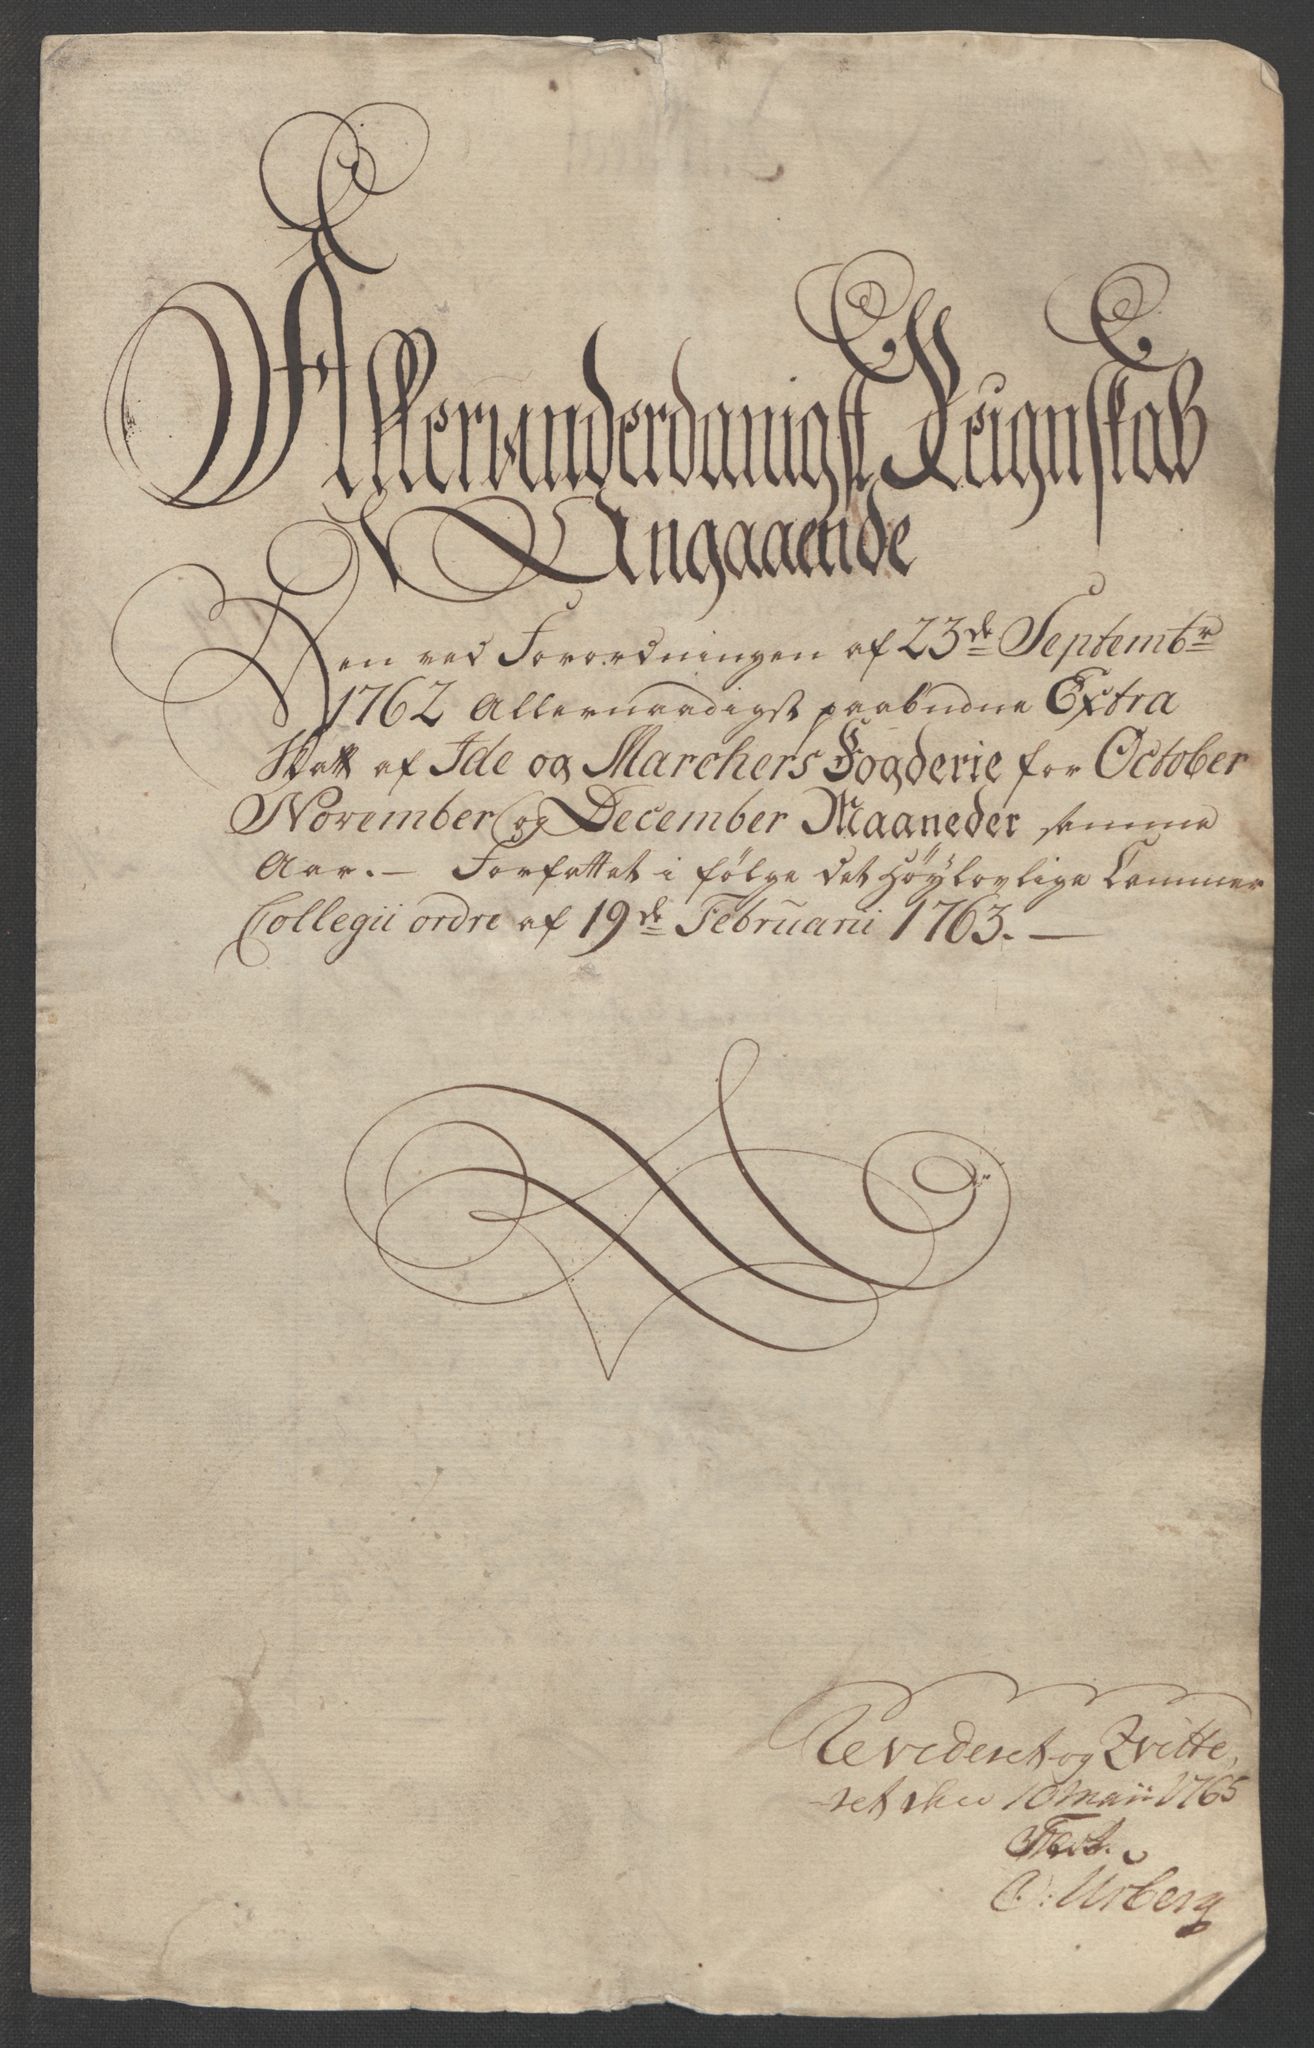 Allerunderdanigst Reignskab
Angaaende
Den ved Forordningen af 23de Septembr
1762 Allernaadigst paabudne Extra
Skatt af Ide og Marchers Fogderie for October
November og December Maaneder samme
Aar. — Forfattet i følge det Høylovlige Cammer
Collegii ordre af 19de Februarii 1763. —
Revideret og Qvitte-
ret den 10 Maii 1765
Urberg